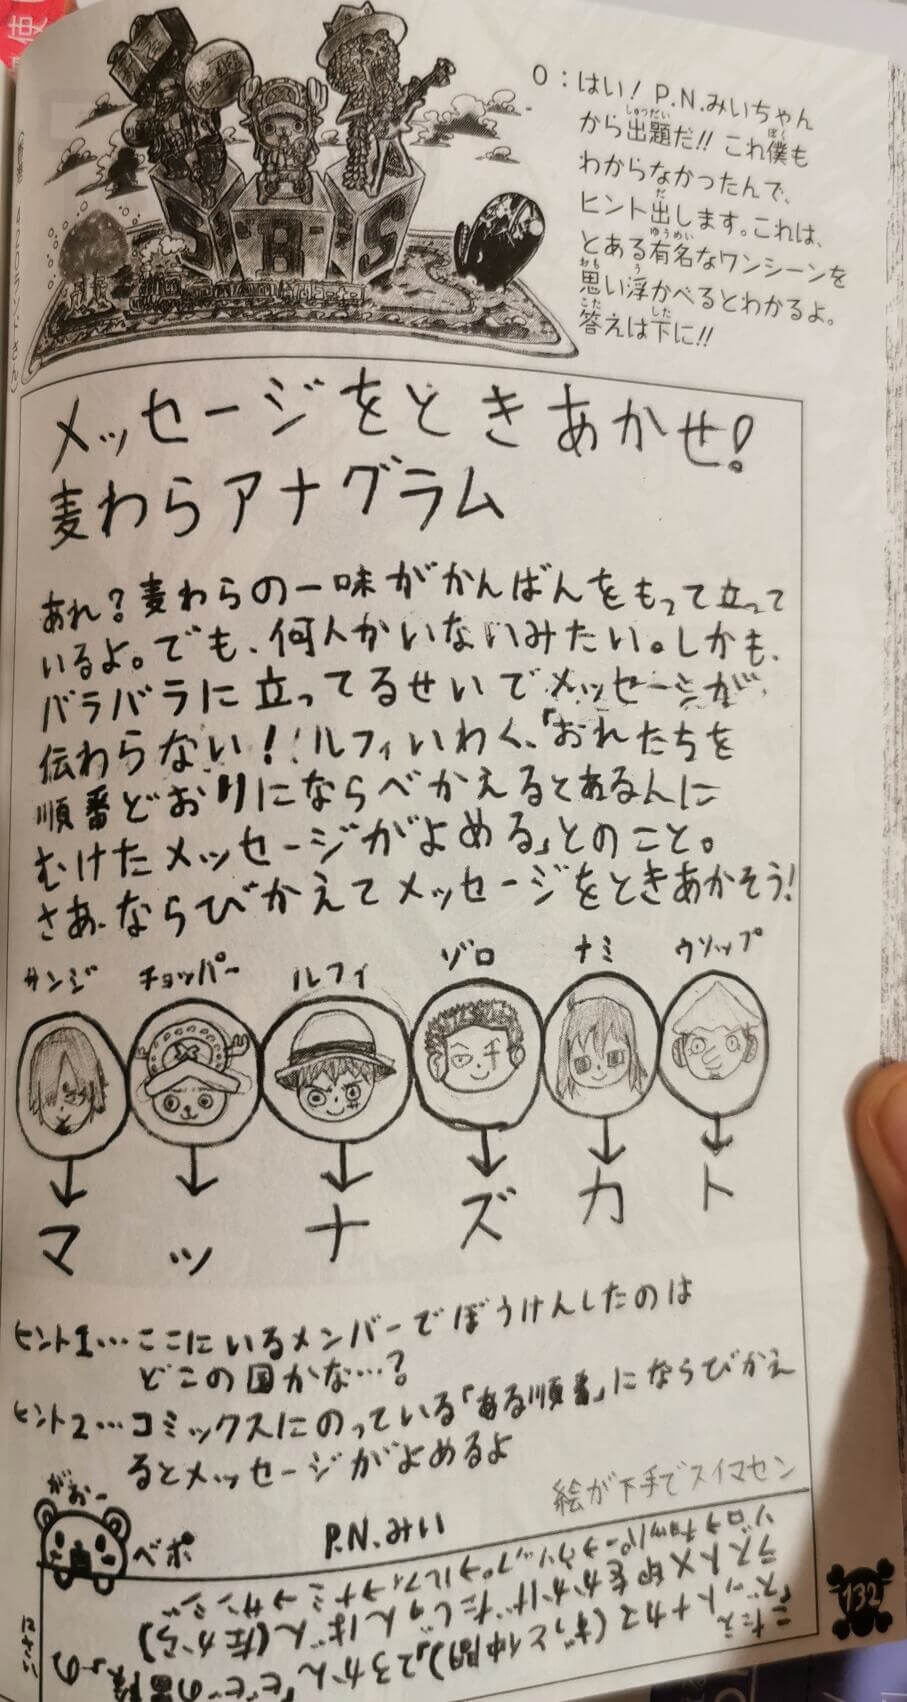 O：はい！P.N.みいちゃん
から出題だ!! これ僕も
わからなかったんで、
ヒント出します。これは、
とある有名なワンシーンを
思い浮かべるとわかるよ。
答えは下に!!
SBS
メッセージをときあかせ!
麦わらアナグラム
あれ？麦わらの一味がかんばんをもって立って
いるよ。でも、何人かいないみたい。しかも、
バラバラに立ってるせいでメッセージが
伝わらない！！ルフィいわく、「おれたちを
順番どおりにならべかえるとある人に
むけたメッセージがよめる」とのこと。
さあ、ならびかえてメッセージをときあかそう!
サンジ チョッパー ルフィ ゾロ ナミ ウソップ
マ ッ ナ ズ カ ト
ヒント1…ここにいるメンバーでぼうけんしたのは
どこの国かな…？
ヒント2…コミックスにのっている「ある順番」にならびかえ
るとメッセージがよめるよ
絵が下手でスイマセン
がおー
ベポ
P.N.みい
こたえ
「ズットナカマ(ずっと仲間)」23かん「ビビの冒険」の
ラスト×印をかかげたじゅんばん(左から)
ゾロ→チョッパー→ウソップ→ルフィ→ナミ→サンジ
132